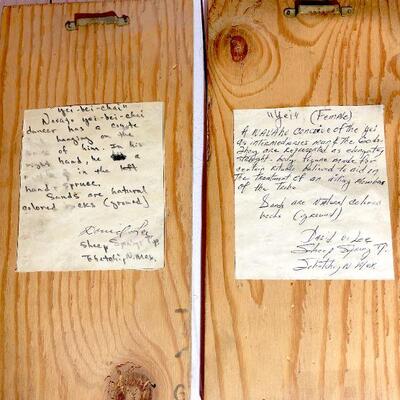 "yei-bei-chai"
Navajo yei-bei-chai
dancer has a coyote
hanging on the
of him. In his
right hand, he a
in the left
hand - spruce.
Sands are natural
colored rocks (ground)
Sheep Springs T.P.
Tohatchi, N. Mex.
"Yei" (Female)
A NAVAHO conceive of the yei
as intermediaries
They are represented as elongated
straight-body figure made for
certain rituals believed to aid in
the treatment of an ailing member
of the Tribe.
Sands are natural colored
rocks (ground)
David V. Lee
Sheep Spring T.P.
Tohatchi, N. Mex.